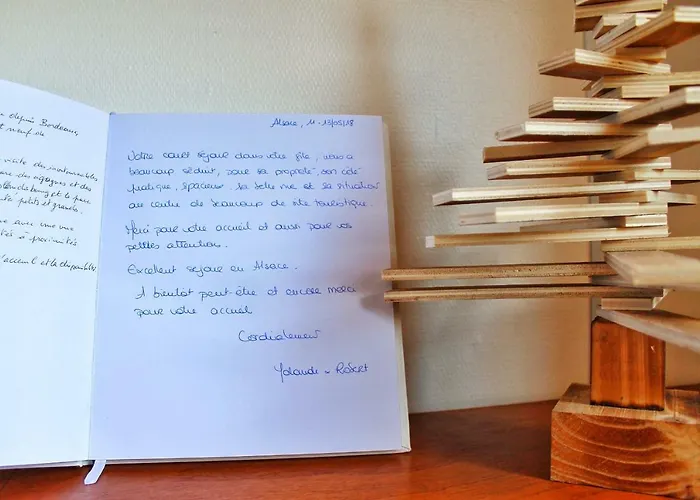 depuis Bordeaux,
visite des incontournables
des cigognes et des
et le parc
petits et grands.
avec une vue
à proximité
l'accueil et la disponibilité
Alsace, 11-13/05/18
Notre court séjour dans votre gîte, nous a
beaucoup séduit, pour sa propreté, son côté
pratique, spacieux. Sa belle vue et sa situation
au centre de beaucoup de site touristique.
Merci pour votre accueil et aussi pour vos
petites attention.
Excellent séjour en Alsace.
A bientôt peut-être et encore merci
pour votre accueil
Cordialement
Yolande & Robert